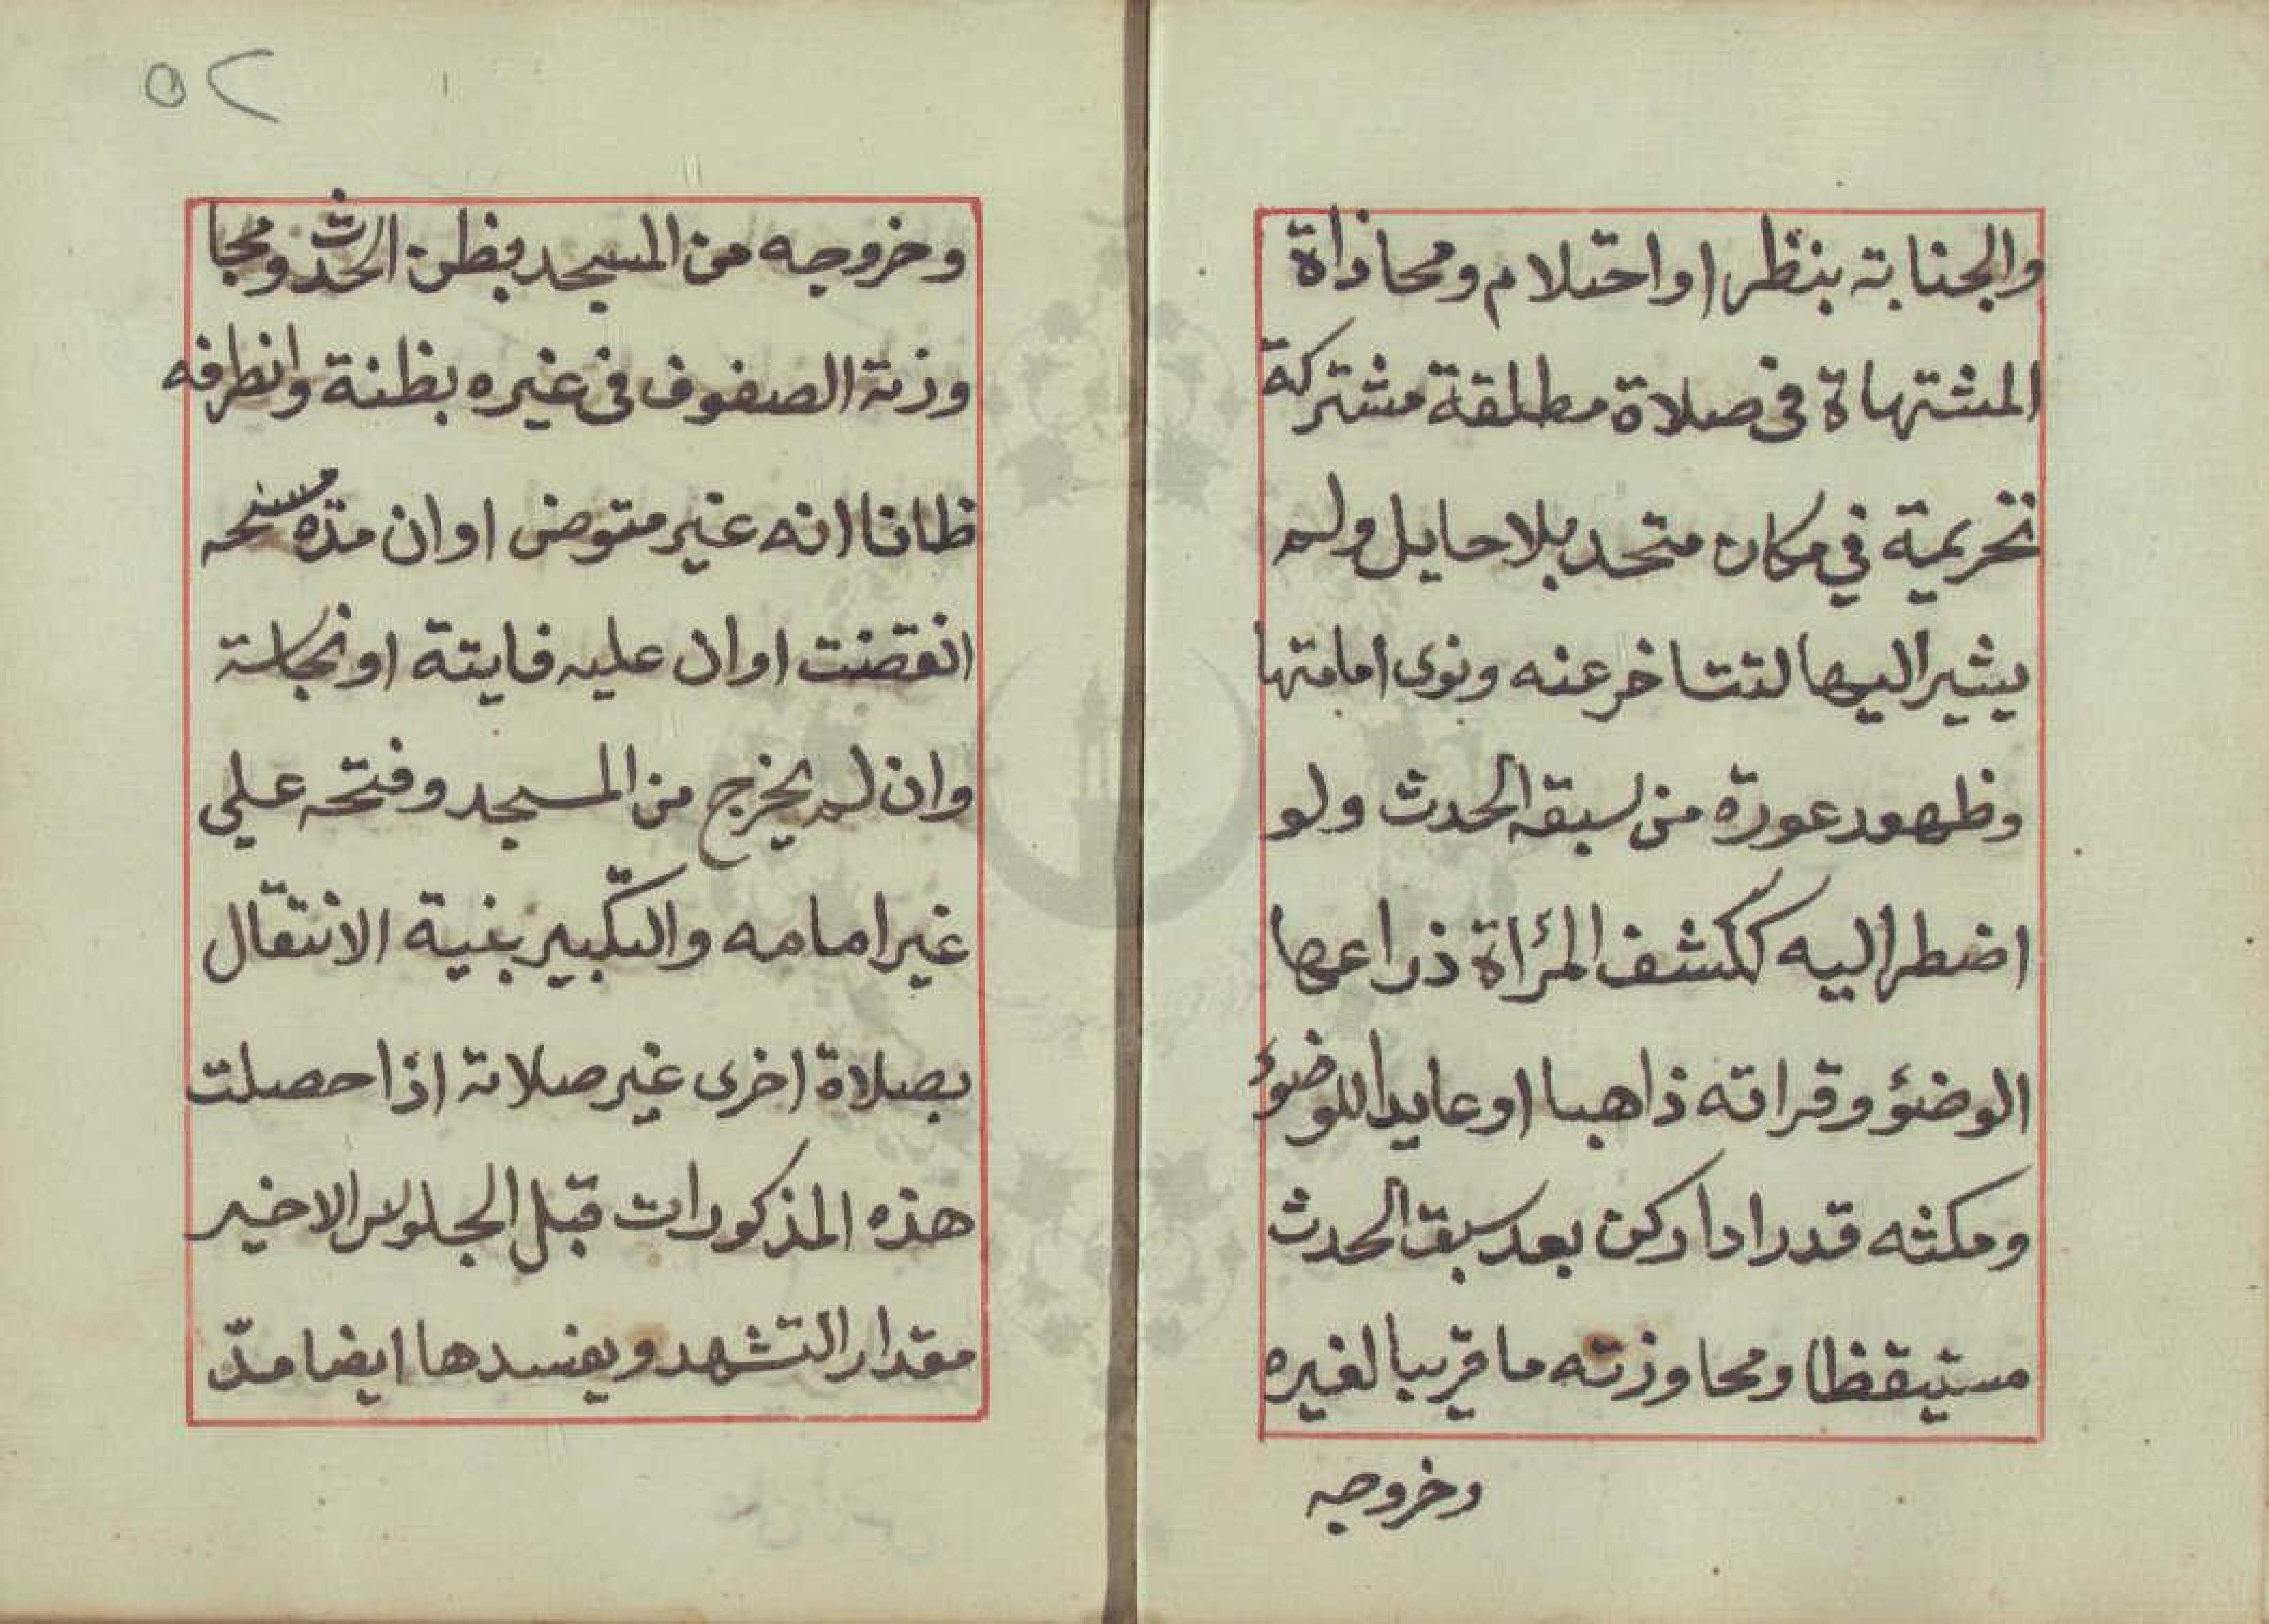 والجنابة بنظر او احتلام ومحاذاة
المشتهاة فى صلاة مطلقة مشتركة
تحريمية في مكان متحد بلا حايل ولم
يشير اليها لتتاخر عنه ونوى امامتها
وظهور عورة من سبقه الحدث ولو
اضطر اليه ككشف المرٔاة ذراعها
الوضؤ وقراته ذاهبا او عايدا للوضؤ
ومكثه قدر ادا ركن بعد سبق الحدث
مستيقظا ومحاوزته ما قريبا لغيره
وخروجه
٥٢
وخروجه من المسجد بظن الحدث ومجا
وزته الصفوف فى غيره بظنة وانطرفه
ظانا انه غير متوضى او ان مدة مسحه
انقضت او ان عليه فايتة او نجاسة
وان لم يخرج من المسجد وفتحه على
غير امامه والتكبير بنية الانتقال
بصلاة اخرى غير صلاته اذا حصلت
هذه المذكورات قبل الجلوس الاخير
مقدار التشهد ويفسدها ايضا مدّ